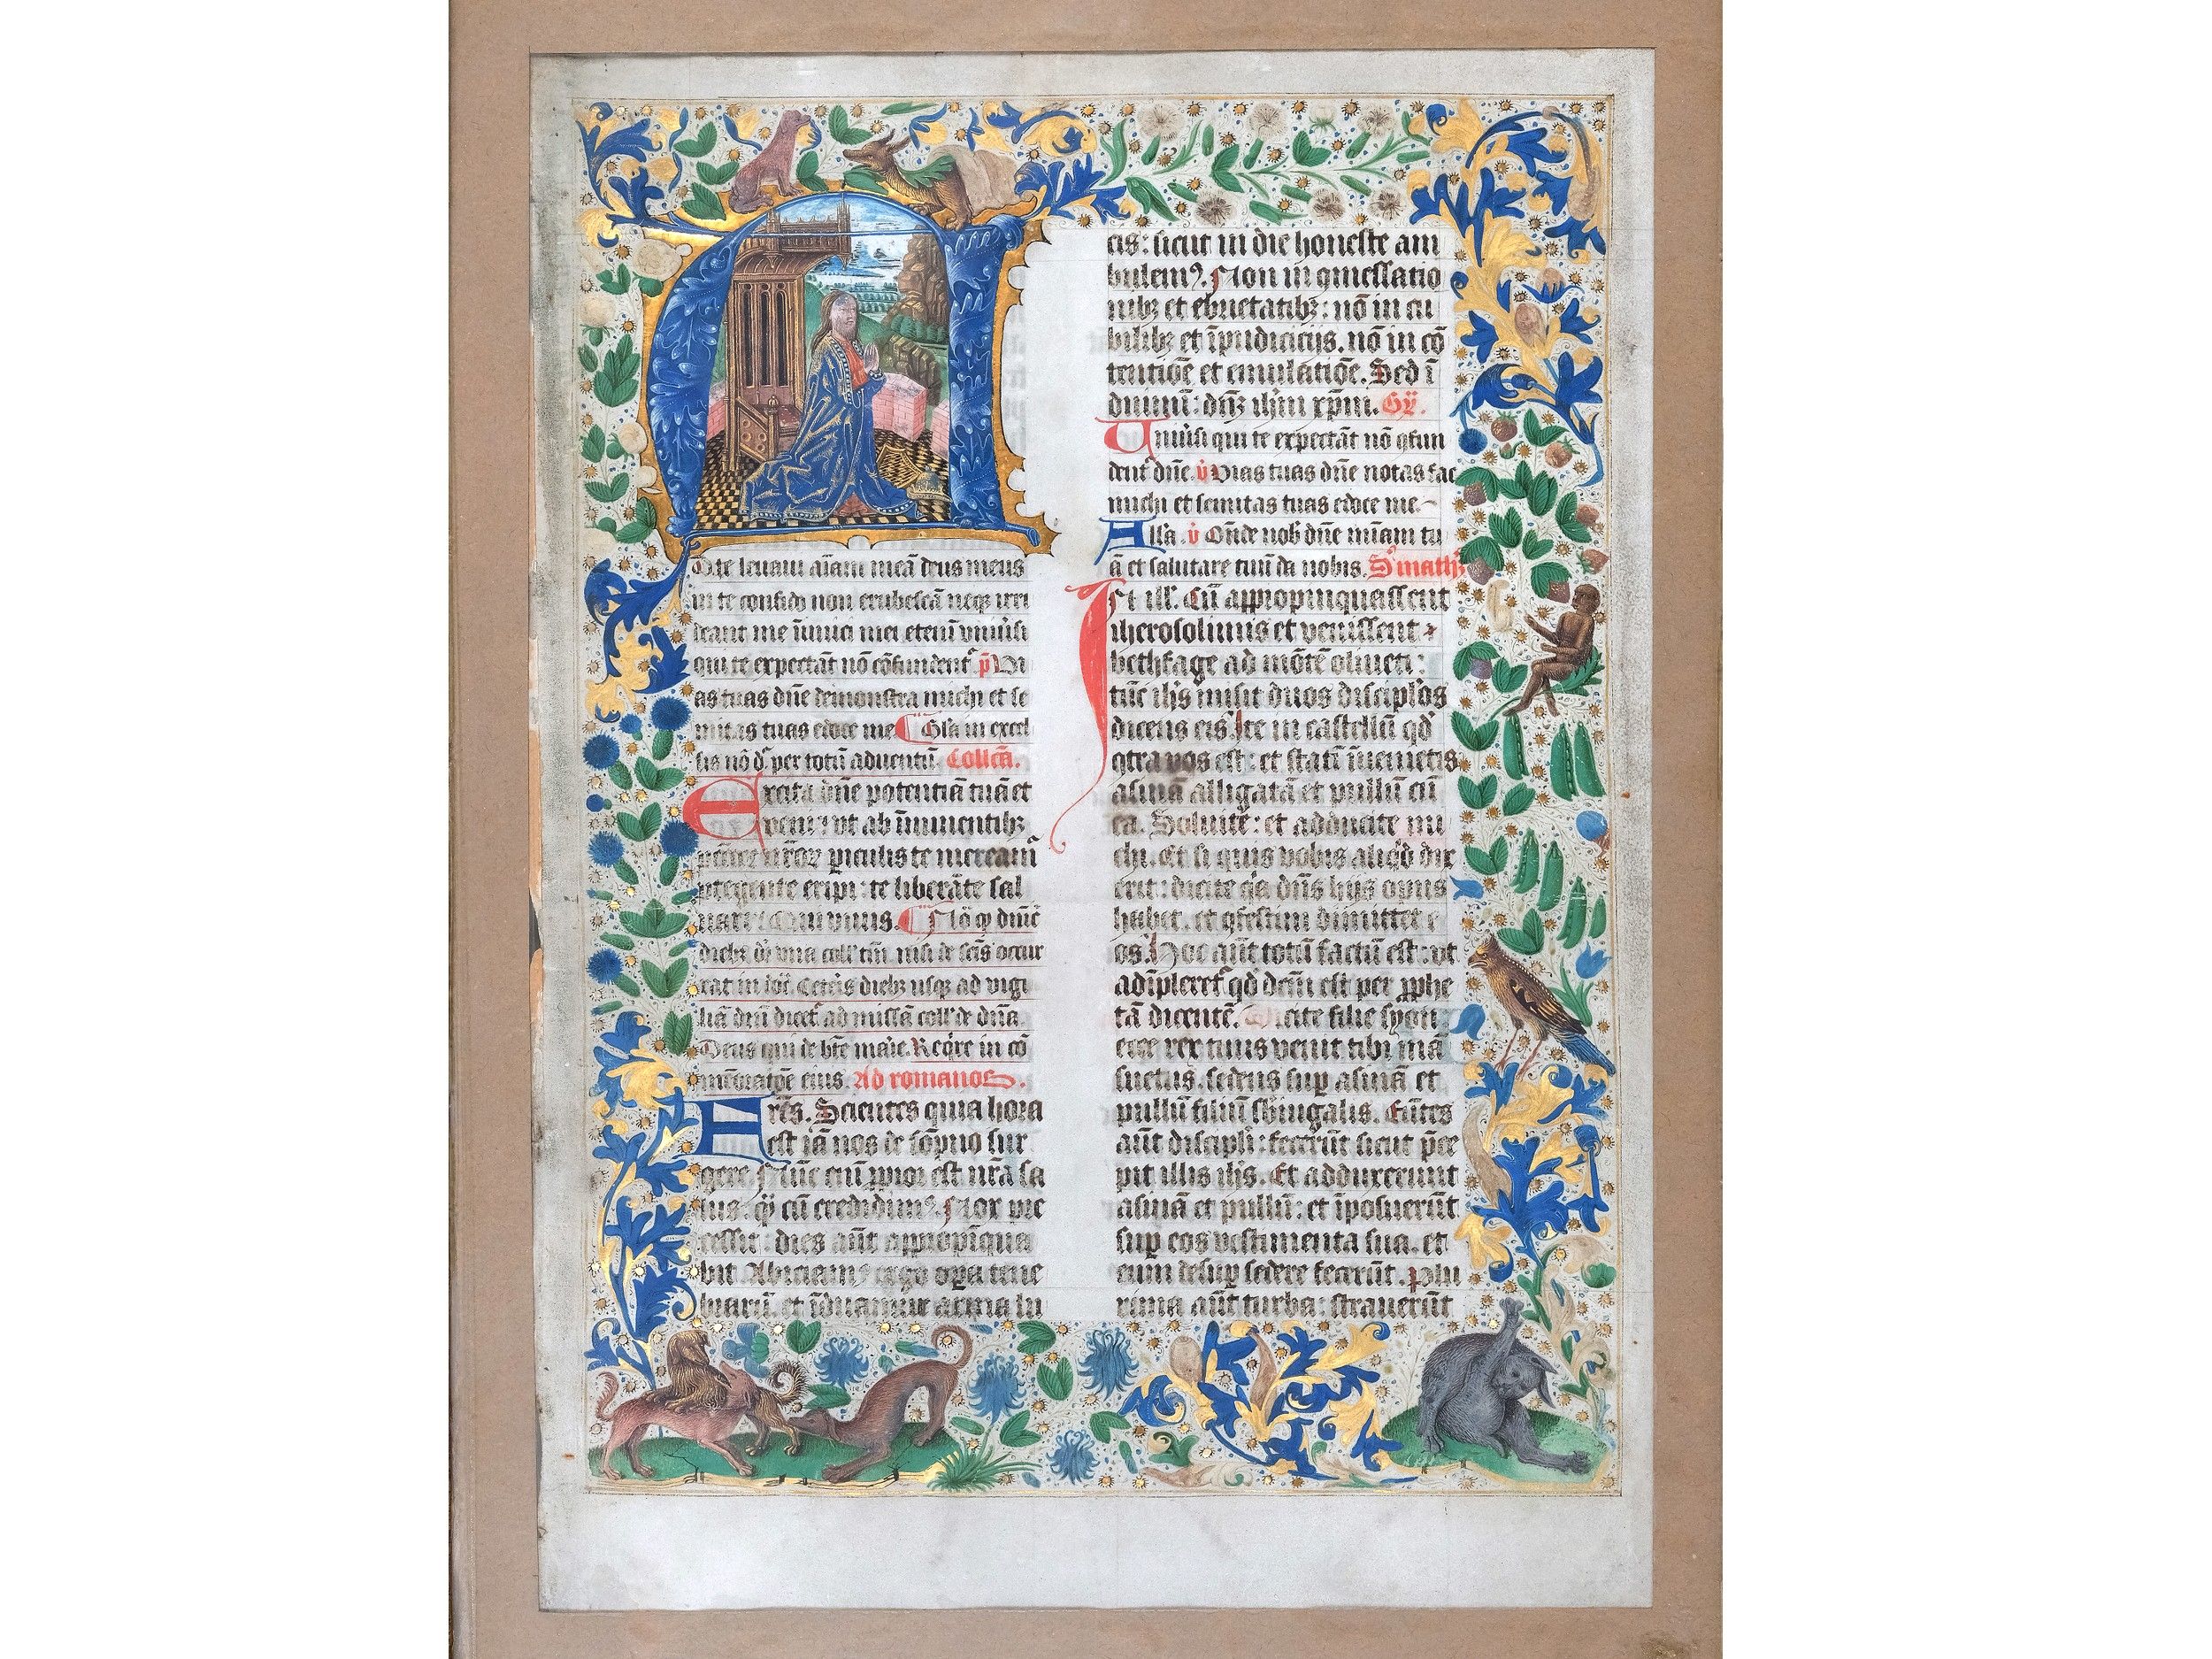 A
D te leuaui aīam meā deus meus
in te confido non erubescā neqꝫ irri
deant me inimici mei etenī vniūsi
qui te expectāt nō cōfundent᷑ p̄ Vi
as tuas dn̄e demonstra michi et se
mitas tuas edoce me Gl̄a in excel
sis nō dr̄ per totū aduentū. Collcā.
Excita dn̄e potentiā tuā et
veni: vt ab īminentibꝫ
pctōꝝ nr̄oꝝ ꝑiculis te meream᷑
ꝓtegente eripi: te liberāte sal
uari. Qui viuis. Nō qꝫ dn̄ic̄
diebꝫ dr̄ vna coll' tm̄. nisi de scīs occur
rat
Cet̄is diebꝫ usqꝫ ad vigi
liā dn̄i dicet᷑ ad missā coll' de dn̄a
Deus qui de bt̄e marie. Reqͥre in cō
mēoratōe eius. Ad romanos.
Frēs. Scientes quia hora
est iā nos de sōpno sur
gere. Nūc enī ꝓpior est nr̄a sa
lus: qͣ cū credidimꝰ. Nox pre
cessit: dies aūt appropīqua
bit. Abiciamꝰ ergo oꝑa tene
brarū. et īduamur arma lu
cis: sicut in die honeste am
bulemꝰ. Non in ꝯmessatio
nibꝫ et ebrietatibꝫ: nō in cu
bilibꝫ et īpudicicijs. nō in cō
tentiōe et emulatiōe. Sed ī
duimī: dn̄ꝫ ih̄m xp̄m. Gͬ.
Vniūsi qui te expectāt nō ꝯfun
dent᷑ dn̄e. v̄ Vias tuas dn̄e notas fac
michi et semitas tuas edoce me.
All'a. v̄ Ostēde nob̄ dn̄e mīam tu
ā et salutare tuū da nobis. S' math'
In ill'. Cū appropinquassent
iherosolimis et venissent
bethfage ad mōtē oliueti:
tūc ih̄s misit duos discipl'os
dicens eis. Ite in castellū qd̄
ꝯtra vos est: et statī īuenietis
asinā alligatā et pullū cū
ea. Soluite: et adducite mi
chi. Et si quis vobis aliqͥd dix
erit: dicite qͥa dn̄s hijs opus
habet. et ꝯfestim dimittet e
os. Hoc aūt totū factū est: vt
adīpleret᷑ qd̄ dcm̄ est per ꝓphe
tā dicentē. Dicite filie syon:
ecce rex tuus venit tibi mā
suetus. sedens suꝑ asinā et
pullū filiū sb̄iugalis. Eūtes
aūt discipl'i: fecerūt sicut p̄ce
pit illis ih̄s. Et adduxerunt
asinā et pullū: et īposuerūt
suꝑ eos vestimenta sua. et
eum desuꝑ sedere fecerūt. Plu
rima aūt turba: strauerūt